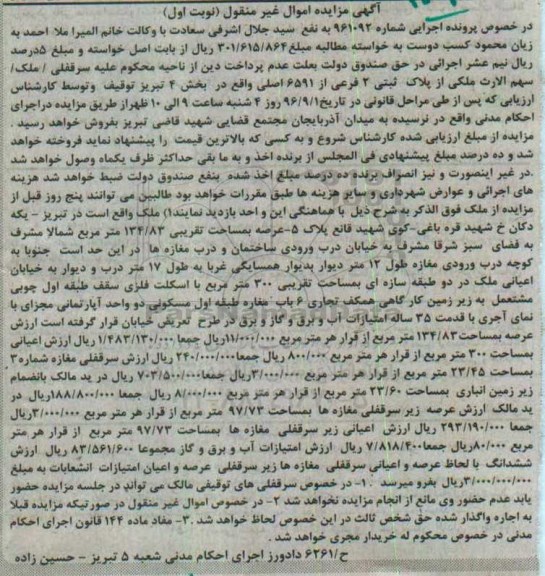 آگهی مزایده اموال غیر منقول (نوبت اول)
در خصوص پرونده اجرایی شماره ۹۲-۹۶۱ به نفع سید جلال اشرفی سعادت با وکالت خانم المیرا ملا احمد به
زیان محمود کسب دوست به خواسته مطالبه مبلغ ۳۰۱/۶۱۵/۸۶۴ ریال از بابت اصل خواسته و مبلغ ۵درصد
ریال نیم عشر اجرائی در حق صندوق دولت بعلت عدم پرداخت دین از ناحیه محکوم علیه سرقفلی / ملک/
سهم الارث ملکی از پلاک ثبتی ۲ فرعی از ۶۵۹۱ اصلی واقع در بخش ۴ تبریز توقیف وتوسط کارشناس
ارزیابی که پس از طی مراحل قانونی در تاریخ ۹۶/۹/۱ روز ۴ شنبه ساعت ۹ الی ۱۰ ظهراز طریق مزایده دراجرای
احکام مدنی واقع در نرسیده به میدان آذربایجان مجتمع قضایی شهید قاضی تبریز بفروش خواهد رسید .
مزایده از مبلغ ارزیابی شده کارشناس شروع و به کسی که بالاترین قیمت را پیشنهاد نماید فروخته خواهد
شد و ده درصد مبلغ پیشنهادی فی المجلس از برنده اخذ و به ما بقی حداکثر ظرف یکماه وصول خواهد شد
.در غیر اینصورت و نیز انصراف برنده ده درصد مبلغ اخذ شده بنفع صندوق دولت ضبط خواهد شد هزینه
های اجرائی و عوارض شهرداری و سایر هزینه ها طبق مقررات خواهد بود طالبین می توانند پنج روز قبل از
مزایده از ملک فوق الذکر به شرح ذیل با هماهنگی این و احد بازدید نمایند۱) ملک واقع است در تبریز - یکه
دکان خ شهید قره باغی-کوی شهید قانع پلاک ۵-عرصه بمساحت تقریبی ۱۳۴/۸۳ متر مربع شمالا مشرف
به فضای سبز شرقا مشرف به خیابان درب ورودی ساختمان و درب مغازه ها در این حد است جنوبا به
کوچه درب ورودی مغازه طول ۱۲ متر دیوار بدیوار همسایگی غربا به طول ۱۷ متر درب و دیوار به خیابان
اعیانی ملک در دو طبقه سازه ای بمساحت تقریبی ۳۰۰ متر مربع با اسکلت فلزی سقف طبقه اول چوبی
مشتمل به زیر زمین کار گاهی همکف تجاری ۶ باب مغازه طبقه اول مسکونی دو واحد آپارتمانی مجزای با
نمای آجری با قدمت ۳۵ ساله امتیازات آب و برق و گاز و برق در طرح تعریض خیابان قرار گرفته است ارزش
عرصه بمساحت۱۳۴/۸۳ متر مربع از قرار هر متر مربع ۱۱/۰۰۰/۰۰۰ریال جمعا ۱/۴۸۳/۱۳۰/۰۰۰ریال ارزش اعیانی
بمساحت ۳۰۰ متر مربع از قرار هر متر مربع ۸۰۰/۰۰۰ ریال جمعا۲۴۰/۰۰۰/۰۰۰ ریال ارزش سرقفلی مغازه شماره۳
بمساحت ۲۳/۴۵ متر مربع از قرار هر متر مربع ۳/۰۰۰/۰۰۰ریال جمعا ۷۰۳/۵۰۰/۰۰۰ ریال در ید مالک بانضمام
زیر زمین انباری بمساحت ۲۳/۶۰ متر مربع از قرار هر متر مربع ۸/۰۰۰/۰۰۰ ریال جمعا ۱۸۸/۸۰۰/۰۰۰ریال در
ید مالک ارزش عرصه زیر سرقفلی مغازه ها بمساحت ۹۷/۷۳ متر مربع از قرار هر متر مربع ۳/۰۰۰/۰۰۰ریال
جمعا ۲۹۳/۱۹۰/۰۰۰ ریال ارزش اعیانی زیر سرقفلی مغازه ها بمساحت ۹۷/۷۳ متر مربع از قرار هر متر
مربع ۸۰/۰۰۰ریال جمعا۷/۸۱۸/۴۰۰ ریال ارزش امتیازات آب و برق و گاز مجموعا ۸۳/۵۶۱/۶۰۰ ریال ارزش
ششدانگ با لحاظ عرصه و اعیانی سرقفلی مغازه ها زیر سرقفلی عرصه و اعیان امتیازات انشعابات به مبلغ
۳/۰۰۰/۰۰۰/۰۰۰ریال بفرو میرسد . ۱- در خصوص سرقفلی های توقیفی مالک می تواند در جلسه مزایده حضور
یابد عدم حضور وی مانع از انجام مزایده نخواهد شد ۲- در خصوص اموال غیر منقول در صورتیکه مزایده قبلا
به اجاره واگذار شده حق شخص ثالث در این خصوص لحاظ خواهد شد .۳- مفاد ماده ۱۴۴ قانون اجرای احکام
مدنی در خصوص محکوم له خریدار مجری خواهد شد .
ح/۶۲۶۱ دادورز اجرای احکام مدنی شعبه ۵ تبریز - حسین زاده